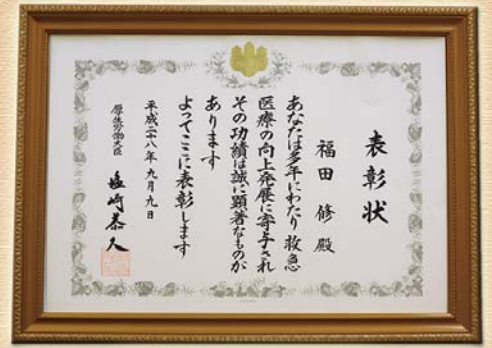 表彰状
福田修殿
あなたは多年にわたり救急
医療の向上発展に寄与され
その功績は誠に顕著なものが
あります
よってここに表彰します
平成二十八年九月九日
厚生労働大臣 塩崎恭久